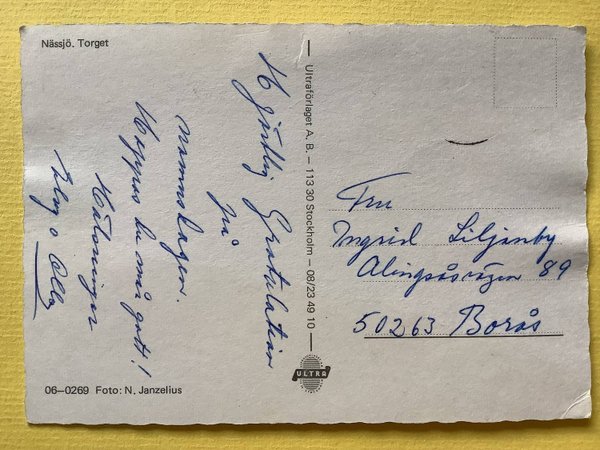 Nässjö. Torget
Hjärtlig Gratulation
på
namnsdagen.
Hoppas du mår gott!
Hälsningar
Olle
06–0269 Foto: N. Janzelius
Ultraförlaget A. B. – 113 30 Stockholm – 08/23 49 10
ULTRA
Fru
Ingrid Liljenby
Alingsåsvägen 89
50263 Borås